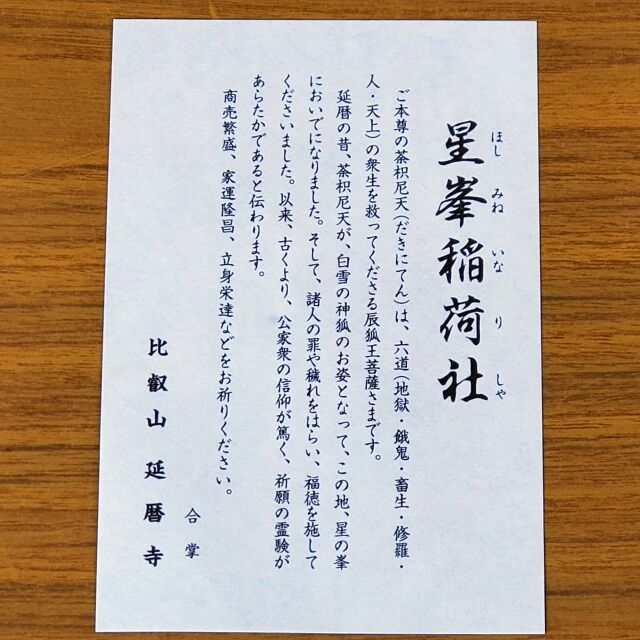 星峯稲荷社
ほし みね いな り しゃ
ご本尊の茶枳尼天(だきにてん)は、六道(地獄・餓鬼・畜生・修羅・
人・天上)の衆生を救ってくださる辰狐王菩薩さまです。
延暦の昔、茶枳尼天が、白雪の神狐のお姿となって、この地、星の峯
においでになりました。そして、諸人の罪や穢れをはらい、福徳を施して
くださいました。以来、古くより、公家衆の信仰が篤く、祈願の霊験が
あらたかであると伝わります。
商売繁盛、家運隆昌、立身栄達などをお祈りください。
合掌
比叡山延暦寺